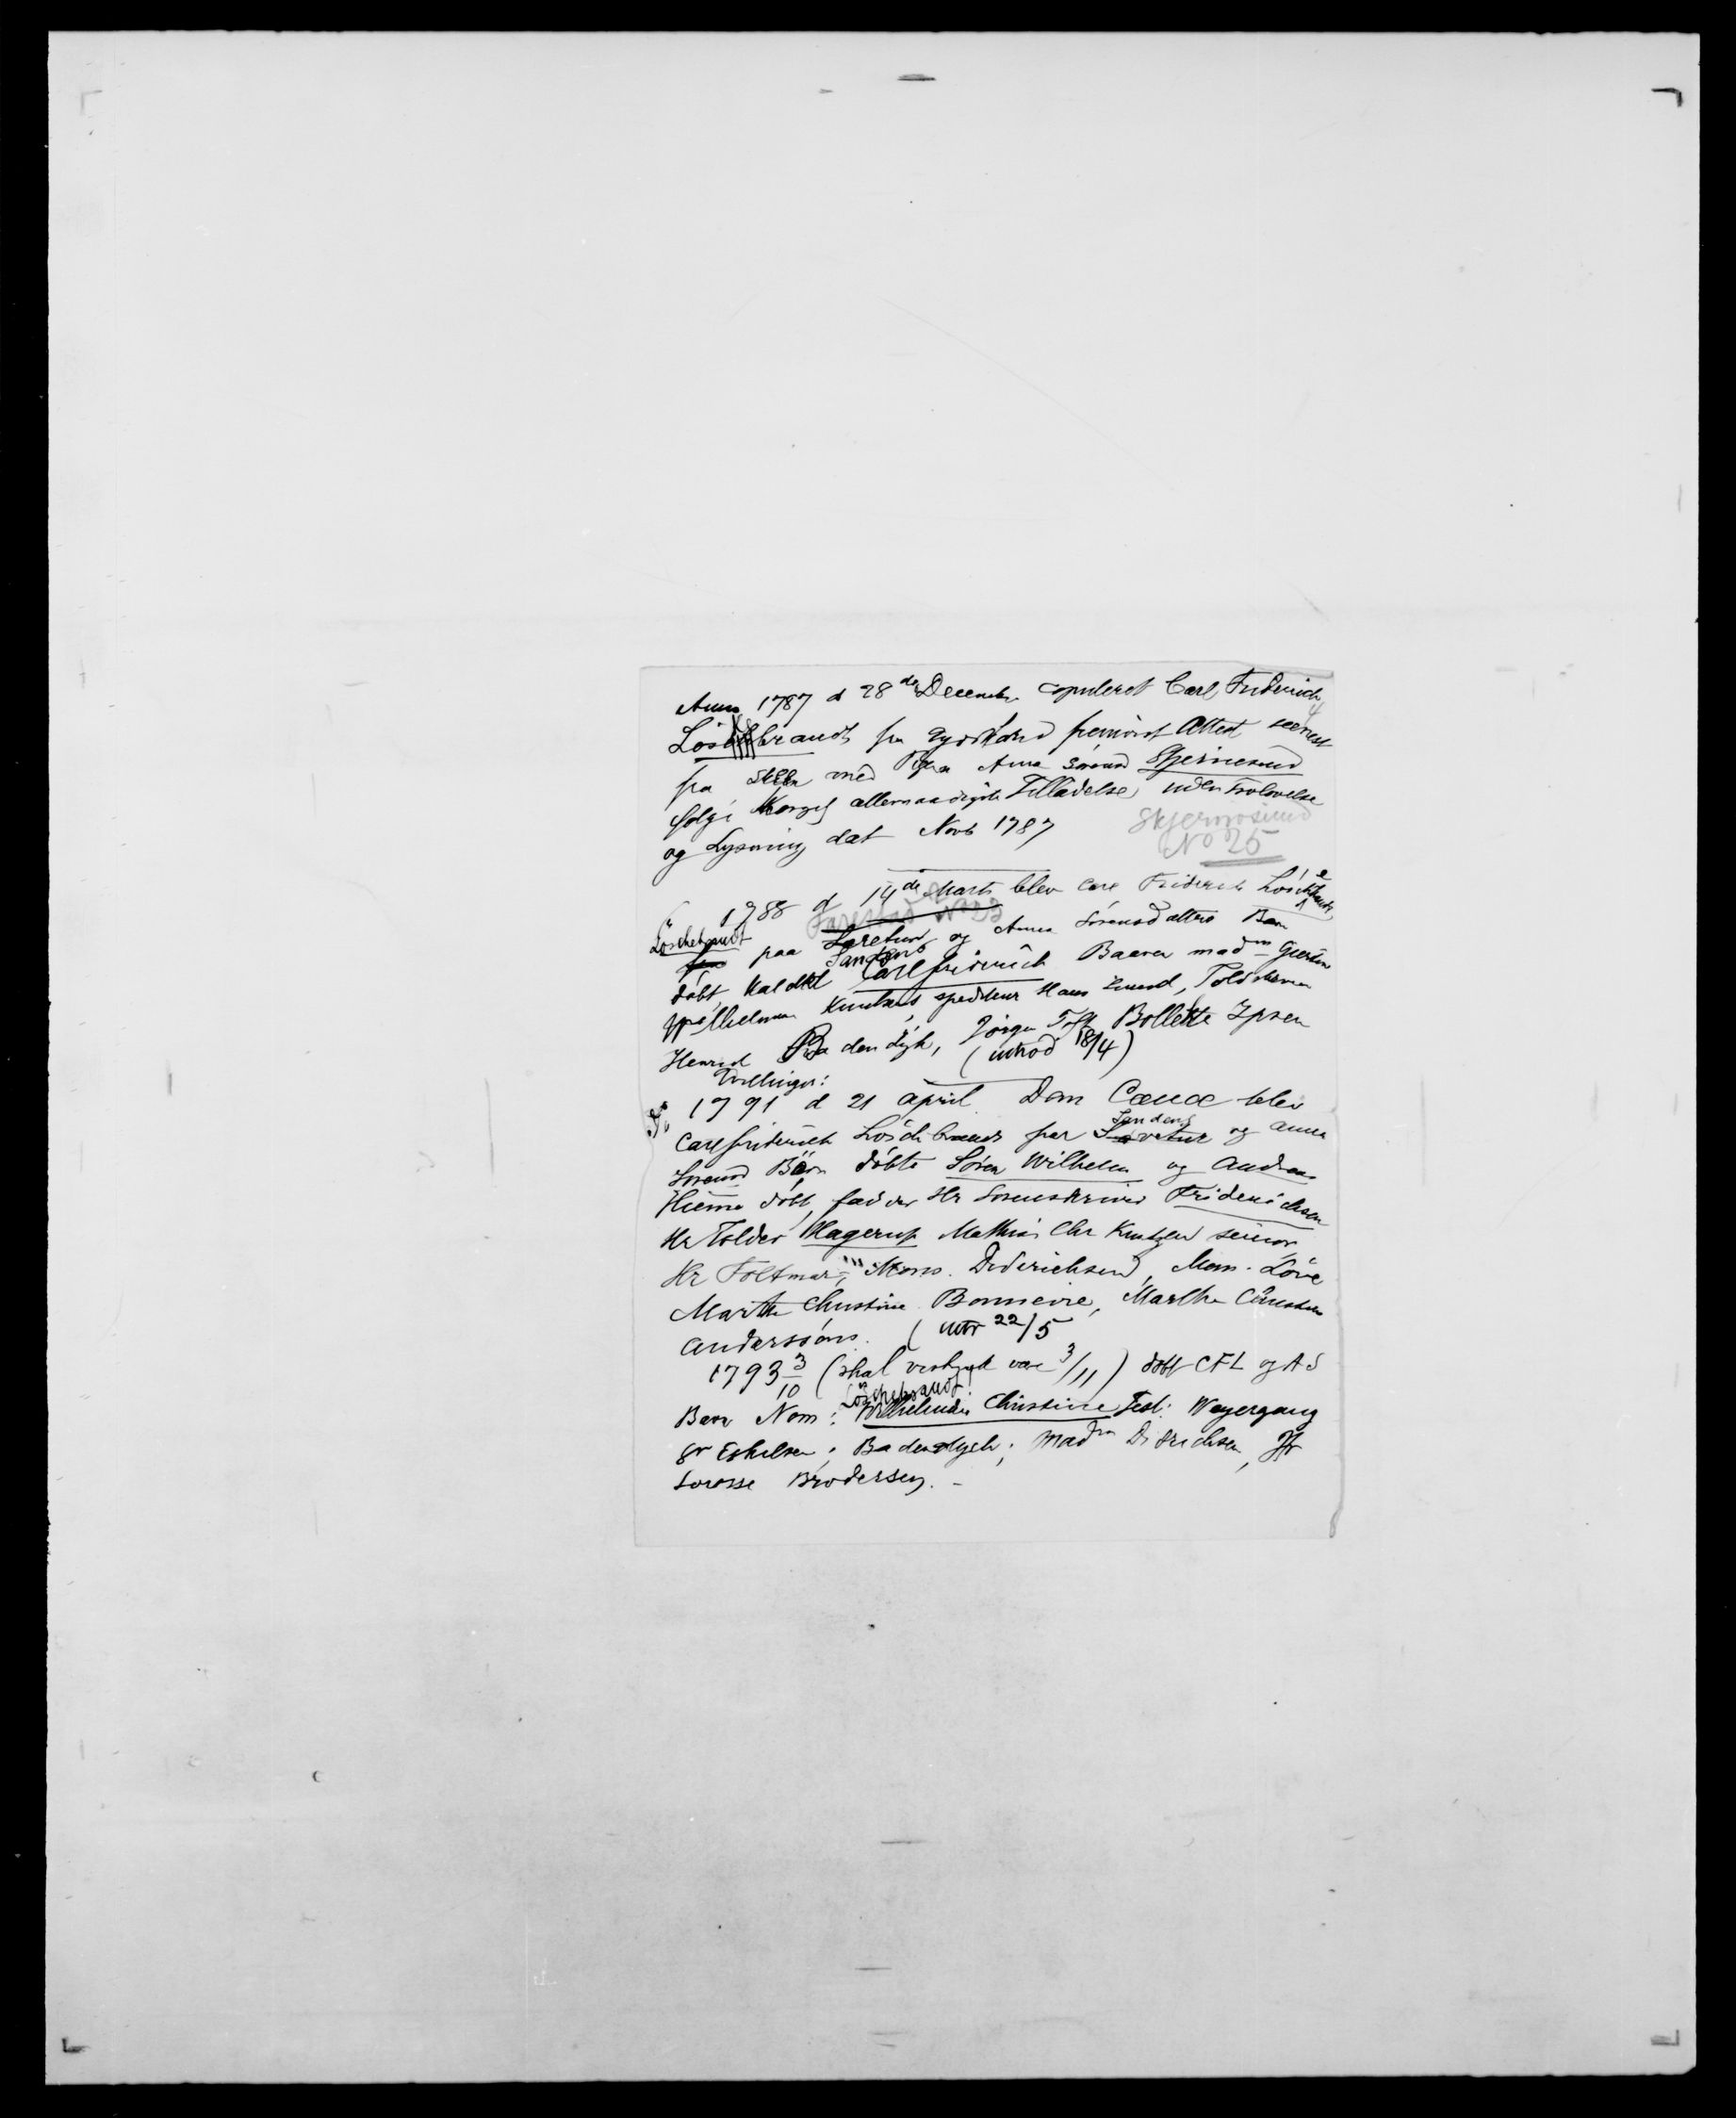 Anno 1787 d 28de Decemb. copuleret Carl Friderich
Löschbrandt fra Tydskland fremvist Attest seenest
fra med Pigen Anna Sörensd Skjernesund
følge Kongel allernaadigste Tilladelse, uden Trolovelse
og Lysning dat Novb 1787
Skjernøsund
No 25
1788 d 14de Marts blev Carl Friderich Löschebrandt
Farestad No 23
Löschebrandt
fra paa Laretur og Anna Sörensdatters Barn
Sandens
döbt, kaldet Carl friderich Baaren madm Giertru
Wilhelmina Knutzens, spediteur Hans Lund, Toldskriver
Henrich Badendyk, Jörgen Toft Bollette Ipsen
(introd 18/4)
Tvillinger:
1791 d 21 april Dom Cœnæ blev
Sandens
Carl friderich Löschbrandt fra Lavetur og Anna
Sörensd Börn döbte Sören Wilhelm og Andreas
Hieme döbt, fadder Hr Sorenskriver Friderichsen
Hr Tolder Hagerup Mathias Chr Knutzen senior
Hr Foltmar, Mons. Diderichsen, Mom. Löve
Marthe Christine Bonnevie, Marthe Christine
Anderssöns. (intr 22/5
1793 3/10 (skal vistnok være 3/11) döbt CFL og AS
Löschebrandt
Barn Nom: Wilhelmine Christine Test: Weyergang
Sr Eskelsen; Badendych; Madm Didrichsen, Jfr
Lovisse Brodersen. -